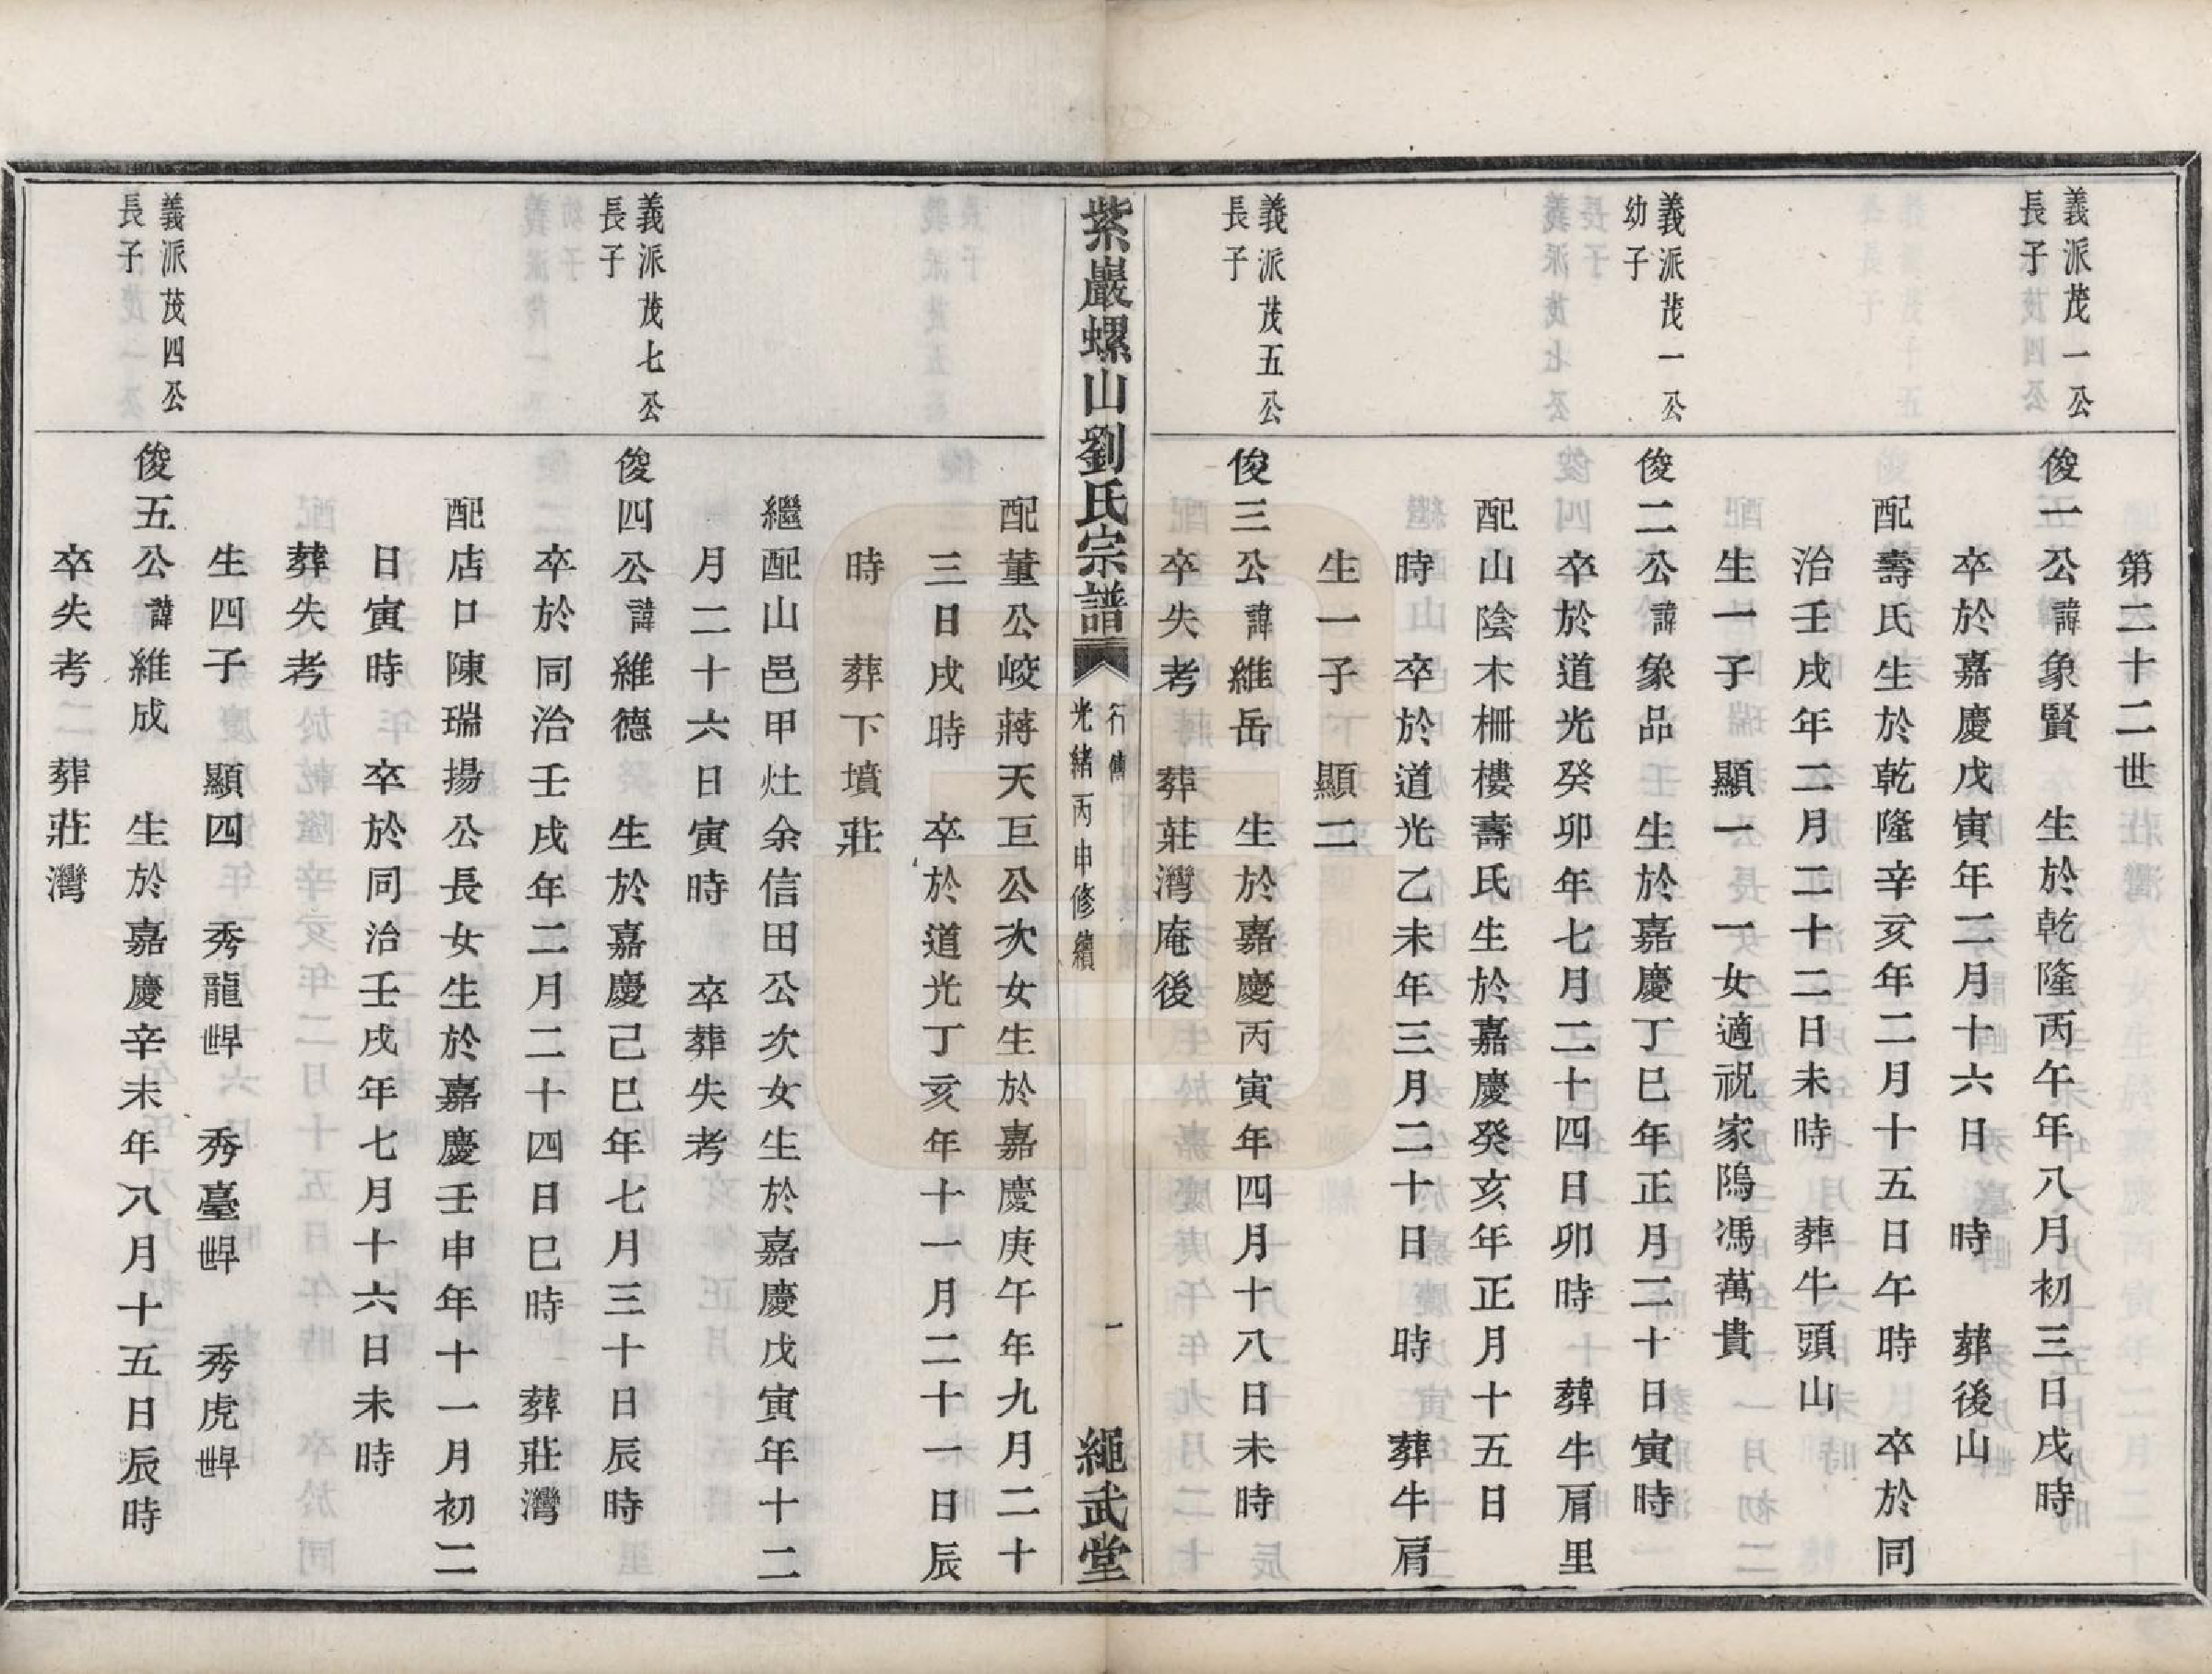 第二十二世
義派茂一公
長子
俊一公諱象賢 生於乾隆丙午年八月初三日戌時
卒於嘉慶戊寅年二月十六日 時 葬後山
配壽氏生於乾隆辛亥年二月十五日午時 卒於同
治壬戌年二月二十二日未時 葬牛頭山
生一子 顯一 一女適祝家隖馮萬貴
義派茂一公
幼子
俊二公諱象品 生於嘉慶丁巳年正月二十日寅時
卒於道光癸卯年七月二十四日卯時 葬牛肩里
配山陰木柵樓壽氏生於嘉慶癸亥年正月十五日
時 卒於道光乙未年三月二十日 時 葬牛肩
生一子 顯二
義派茂五公
長子
俊三公諱維岳 生於嘉慶丙寅年四月十八日未時
卒失考 葬莊灣庵後
紫巖螺山劉氏宗譜
行傳
光緒丙申修續
一
繩武堂
配董公崚蔣天巨公次女生於嘉慶庚午年九月二十
三日戌時 卒於道光丁亥年十一月二十一日辰
時 葬下墳莊
繼配山邑甲灶余信田公次女生於嘉慶戊寅年十二
月二十六日寅時 卒葬失考
義派茂七公
長子
俊四公諱維德 生於嘉慶己巳年七月三十日辰時
卒於同治壬戌年二月二十四日巳時 葬莊灣
配店口陳瑞揚公長女生於嘉慶壬申年十一月初二
日寅時 卒於同治壬戌年七月十六日未時
葬失考
生四子 顯四 秀龍 秀臺 秀虎
義派茂四公
長子
俊五公諱維成 生於嘉慶辛未年八月十五日辰時
卒失考 葬莊灣